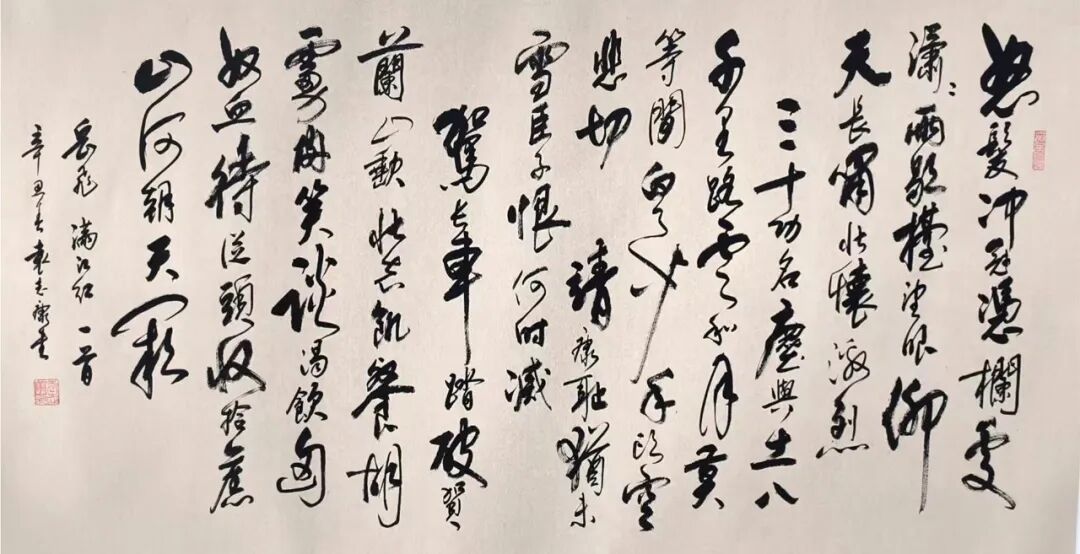 怒髮冲冠憑欄處
瀟瀟雨歇擡望眼仰
天長嘯壯懷激烈
三十功名塵與土八
千里路雲和月莫
等閒白了少年頭空
悲切 靖康耻猶未
雪臣子恨何时滅
駕長車踏破賀
蘭山缺壯志飢餐胡
虜肉笑談渴飲匈
奴血待從頭收拾舊
山河朝天闕
岳飛滿江紅一首
辛丑春袁志